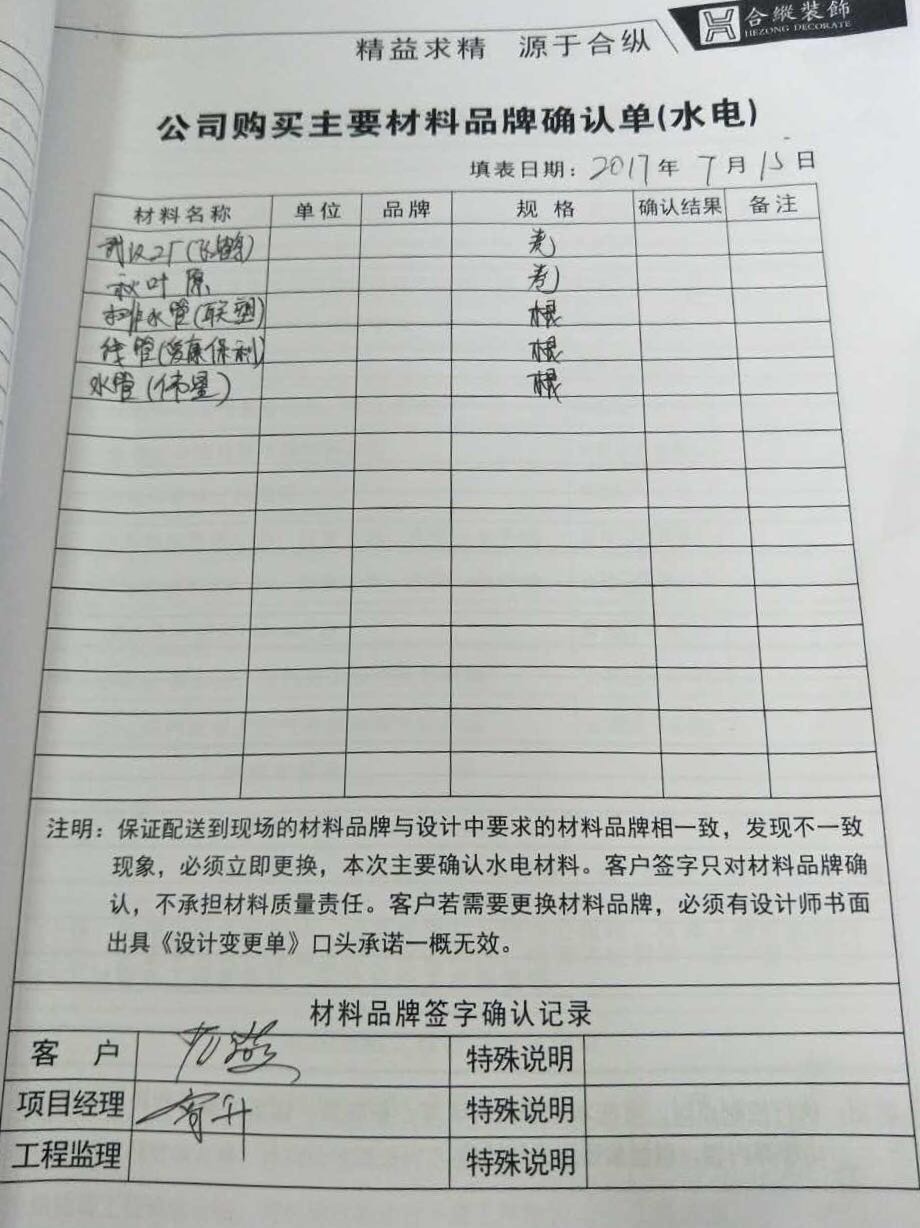 合縱装飾
HEZONG DECORATE
精益求精 源于合纵
公司购买主要材料品牌确认单(水电)
填表日期：2017年7月15日
材料名称 单位 品牌 规格 确认结果 备注
武汉二厂(飞鹤) 卷
秋叶原 卷
排水管(联塑) 根
线管(爱康保利) 根
水管(伟星) 根
注明：保证配送到现场的材料品牌与设计中要求的材料品牌相一致，发现不一致
现象，必须立即更换，本次主要确认水电材料。客户签字只对材料品牌确
认，不承担材料质量责任。客户若需要更换材料品牌，必须有设计师书面
出具《设计变更单》口头承诺一概无效。
材料品牌签字确认记录
客户 特殊说明
项目经理 特殊说明
工程监理 特殊说明